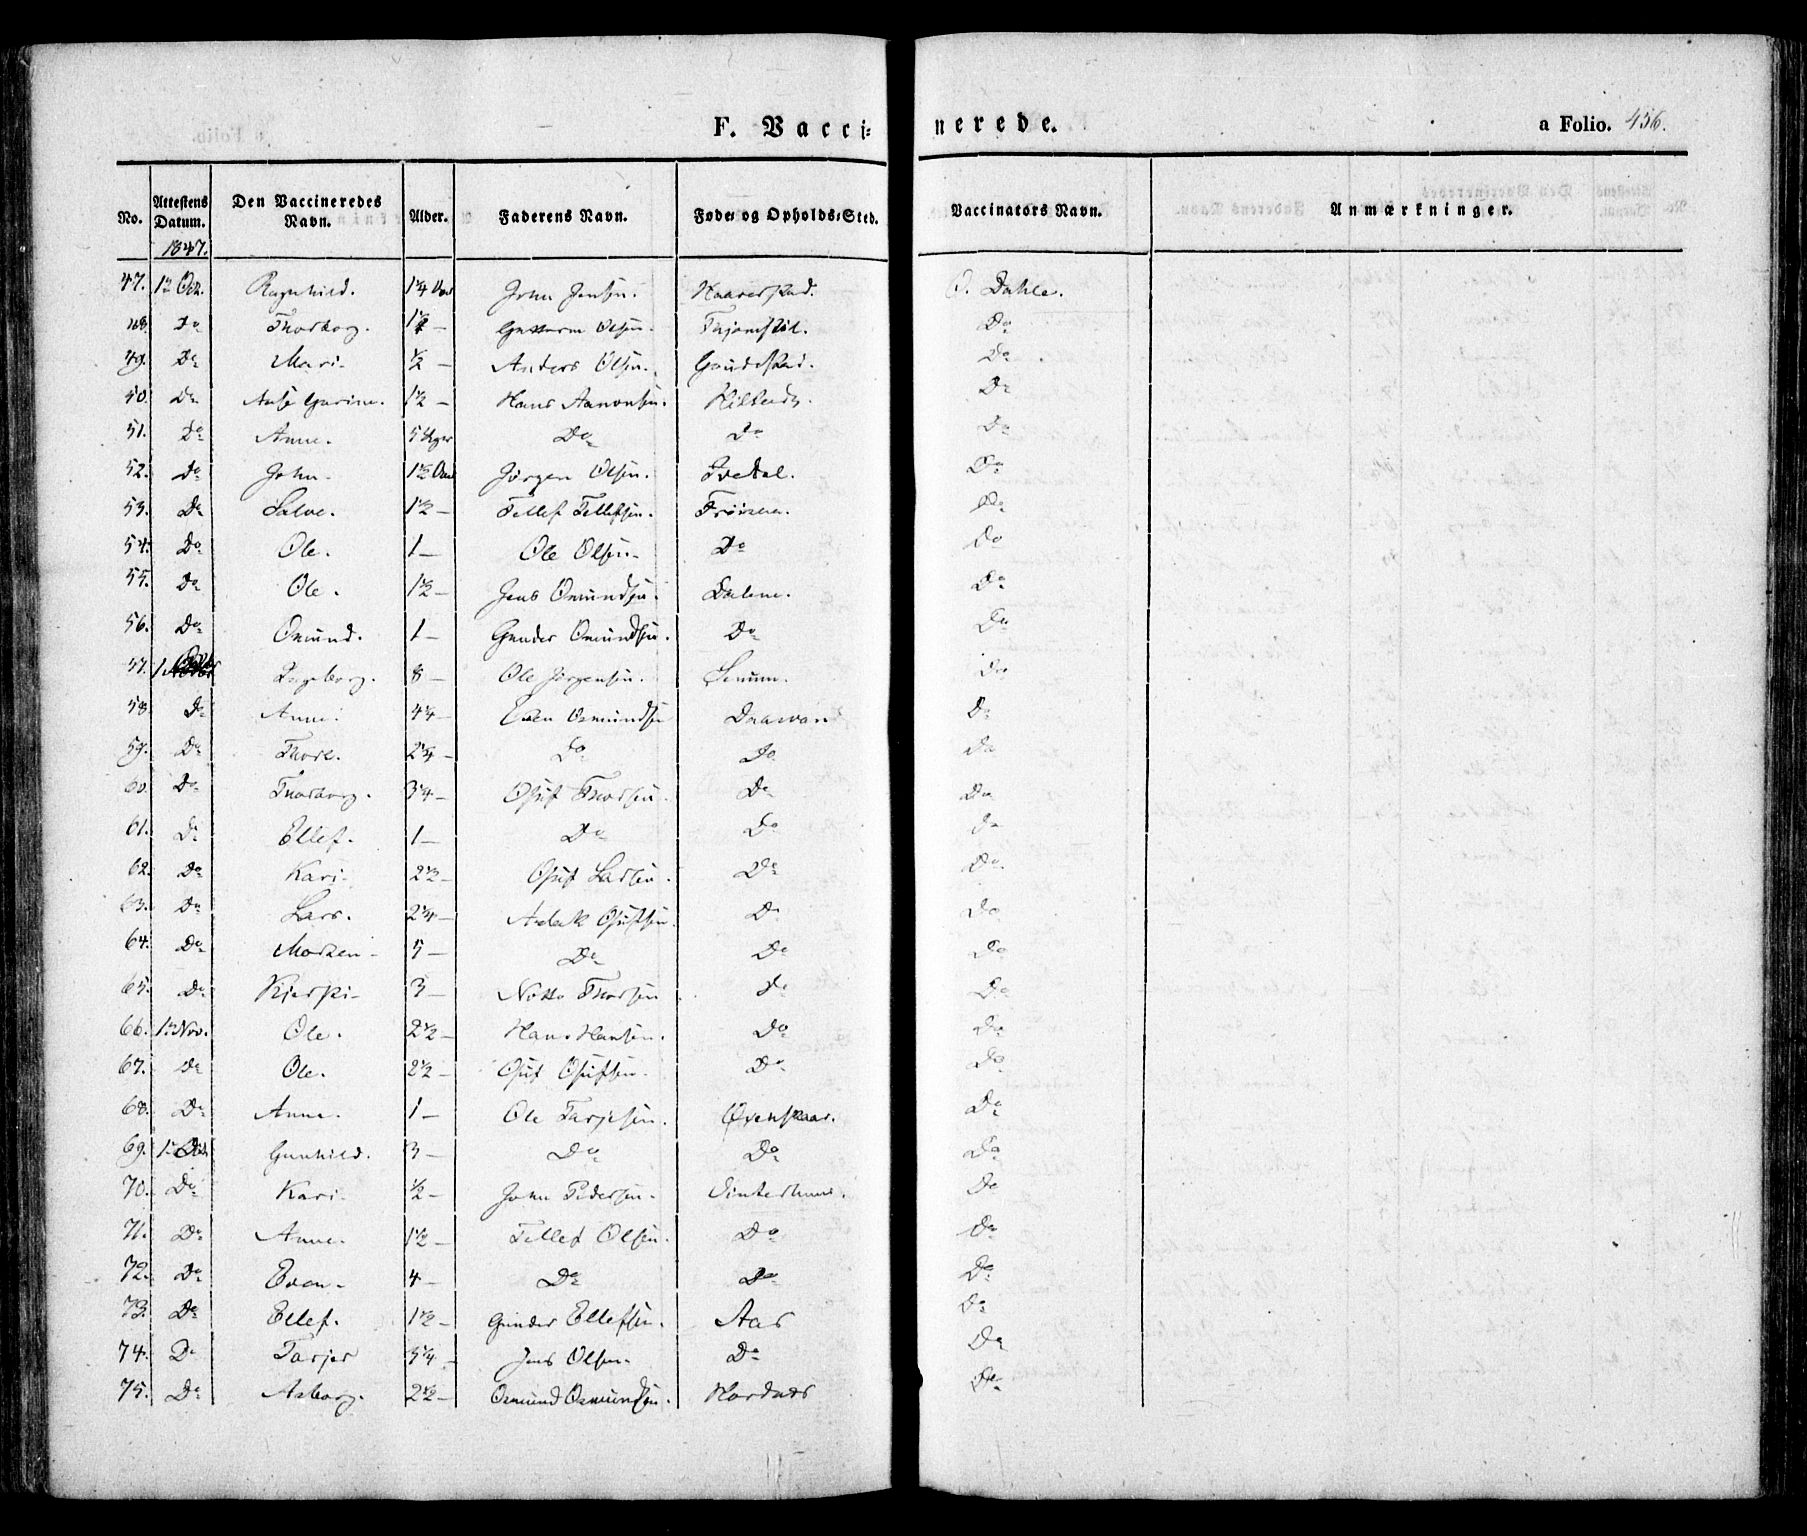 F. Vacci= nerede. a Folio. 456.
No. Attestens Datum. Den Vaccineredes Navn. Alder. Faderens Navn. Føde- og Opholds-Sted. Vaccinators Navn. Anmærkninger.
1847.
47. 1ste Oct. Ragnhild. 1¼ Aar John Jensen. Haaverstad. O. Dahle.
48. Do Thorborg. Guttorm Olsen. Do
49. Do Mari. ½ — Anders Olsen. Do
50. Do 1½ — Hans Aanonsen. Do
51. Do Anne. 5 Uger Do Do Do
52. Do John. 1½ Aar Jørgen Olsen. Ivedal. Do
53. Do Salve. 1½ — Tellef Tellefsen. Frøisna. Do
54. Do Ole. 1 — Ole Olsen Do Do
55. Do Ole. 1½ — Jens Osmundsen. Dalene. Do
56. Do Osmund. 1 — Gunder Osmundsen. Do Do
57. Ingeborg. 8 — Ole Jørgensen. Senum. Do
58. Do Anne. 4¼ — Even Osmundsen Daasvan Do
59. Do Thore. 2¾ — Do Do Do
60. Do Thorborg. 3¼ — Osuf Thorsen. Do Do
61. Do Ellef. 1 — Do Do Do
62. Do Kari. 2½ — Osuf Larsen. Do Do
63. Do Lars. 2¼ — Osufsen. Do Do
64. Do 5 — Do Do Do
65. Do Kjersti 3 — Notto Thorsen Do Do
66. 1ste Nov. Ole. 2½ — Hans Hansen. Do Do
67. Do Ole. 2½ — Osuf Osufsen. Do Do
68. Do Anne. 1 — Ole Tarjesen. Oxenskaar. Do
69. Gunhild. 3 — Do Do Do
70. Do Kari. ½ — John Pedersen. Vinterhuus. Do
71. Do Anne. 1½ — Tellef Olsen. Do Do
72. Do Even. 4 — Do Do Do
73. Do Ellef. 1½ — Gunder Ellefsen. Aas Do
74. Do Tarjer 5¼ — Jens Olsen. Do Do
75. Do Asborg. 2½ — Osmund Osmundsen. Hordnes Do